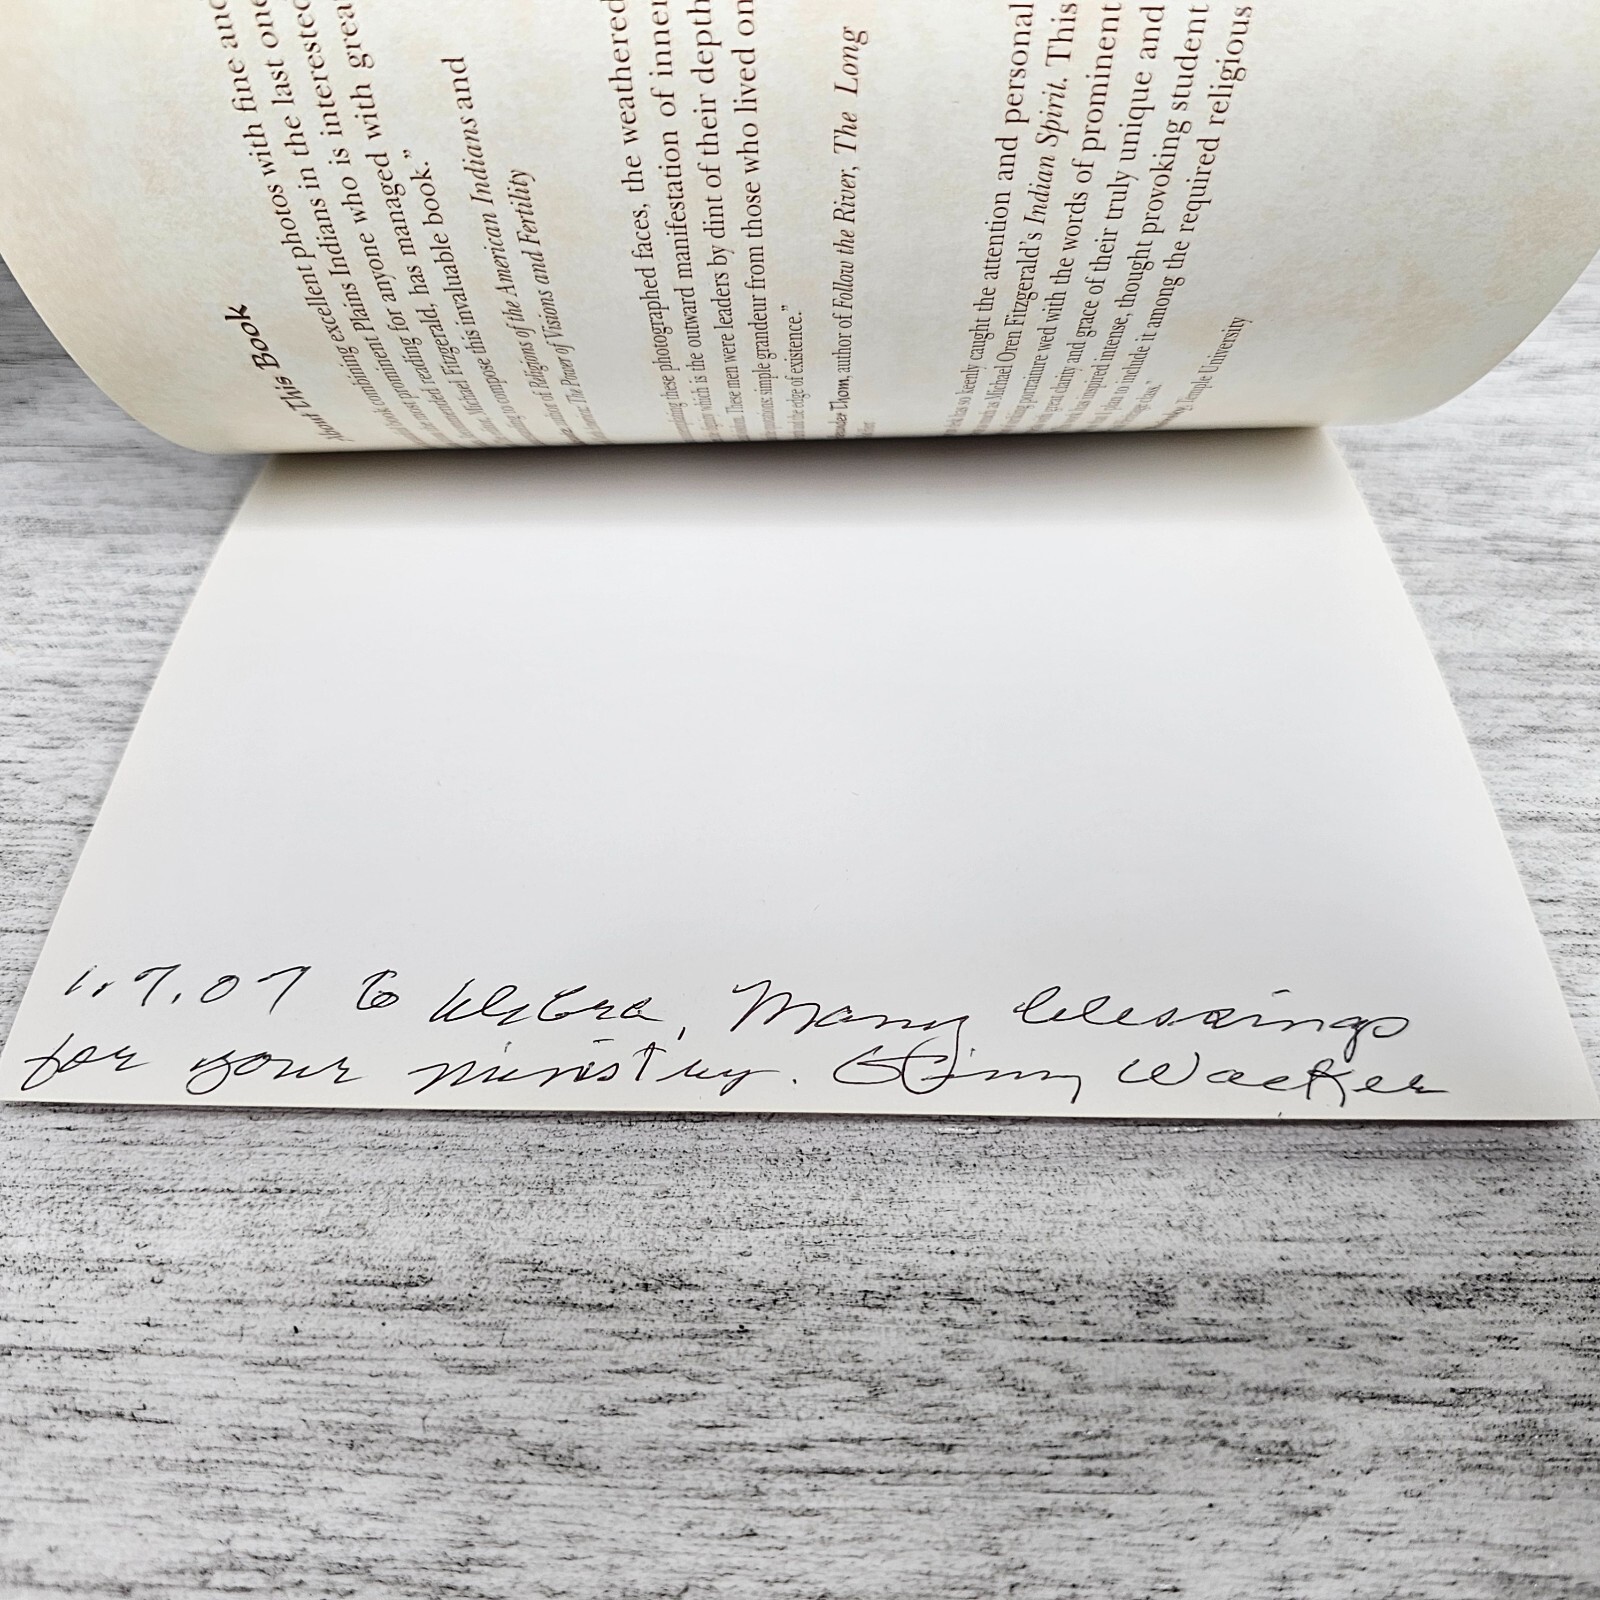 About This Book
photos with fine and
combining excellent Indians in the last one
prominent Plains who is interested
most prominent for anyone managed with great
reading, has
Michael Fitzgerald, book."
to compose this invaluable
author of Religions of the American Indians and
The Power of Visions and Fertility
these photographed faces, the weathered
which is the outward manifestation of inner
These men were leaders by dint of their depth
simple grandeur from those who lived on
the edge of existence."
Thom, author of Follow the River, The Long
has so keenly caught the attention and personal
as Michael Oren Fitzgerald's Indian Spirit. This
portraiture wed with the words of prominent
great clarity and grace of their truly unique and
has inspired intense, thought provoking student
plan to include it among the required religious
Temple University
1.7.07 to Debra, Many blessings
for your ministry. Wacker